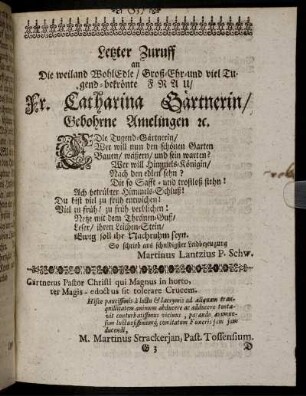 Letzter Zuruff
an
Die weiland WohlEdle / Groß-Ehr-und viel Tu-
gend-bekrönte FRAU /
Fr. Catharina Gärtnerin /
Gebohrne Amelingen ꝛc.
Die Tugend-Gärtnerin /
Wer will nun den schönen Garten
Bauen / wässern / und sein warten?
Wer will Himmels-Königin /
Nach den edlen sehn?
Die so Safft- und trostloß stehn!
Ach betrübter Himmels-Schluß!
Du bist viel zu früh entwichen!
Viel zu früh! zu früh verblichen!
Netze mit dem Threnen-Guß /
Leser / ihren Leichen-Stein /
Ewig soll ihr Nachruhm seyn.
So schrieb aus schuldigster
Martinus Lantzius P. Schw.
Gærtnerus Pastor Christi qui Magnus in horto,
ter Magis edoctus sit tolerare Crucem.
Hisce pauxillis à lectu &
animum abducere ac
M. Martinus Strackerjan, Past. Tossensium.
G 3
D